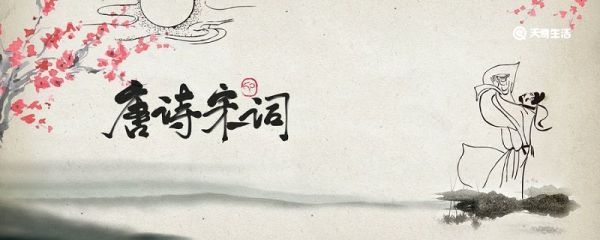 天奇生活
唐诗宋词